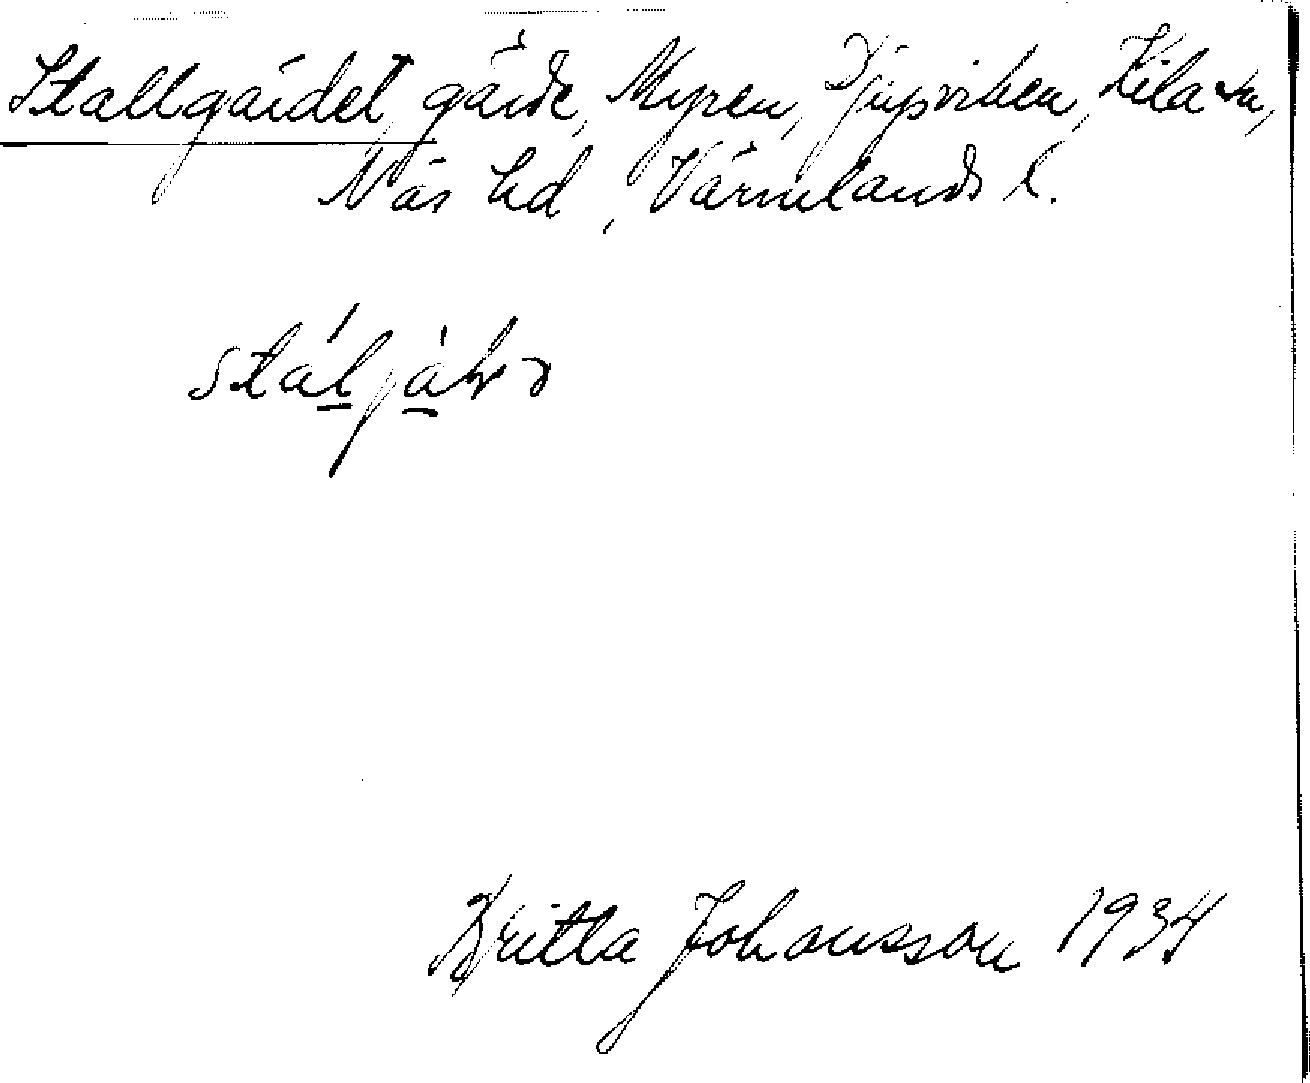 Stallgärdet, gärde, Myren, Djupviken, Kila sn,
Näs hd, Värmlands l.
Britta Johansson 1934